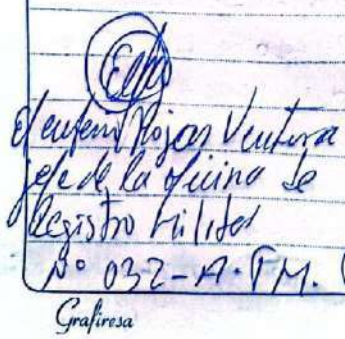 Rojas Ventura
jefe de la oficina de
Registro Militar
Nº 032-A.
Grafiresa